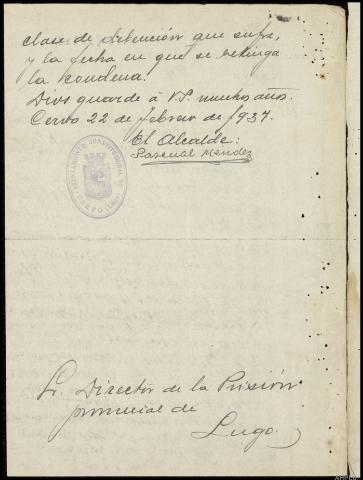 clase de detención que sufre,
y la fecha en que se extinga
la condena.
Dios guarde á V.S. muchos años.
Cervo 22 de febrero de 1937.
El Alcalde:
Pascual Méndez
AYUNTAMIENTO CONSTITUCIONAL DE
CERVO (LUGO)
Sr. Director de la Prisión
provincial de
Lugo.